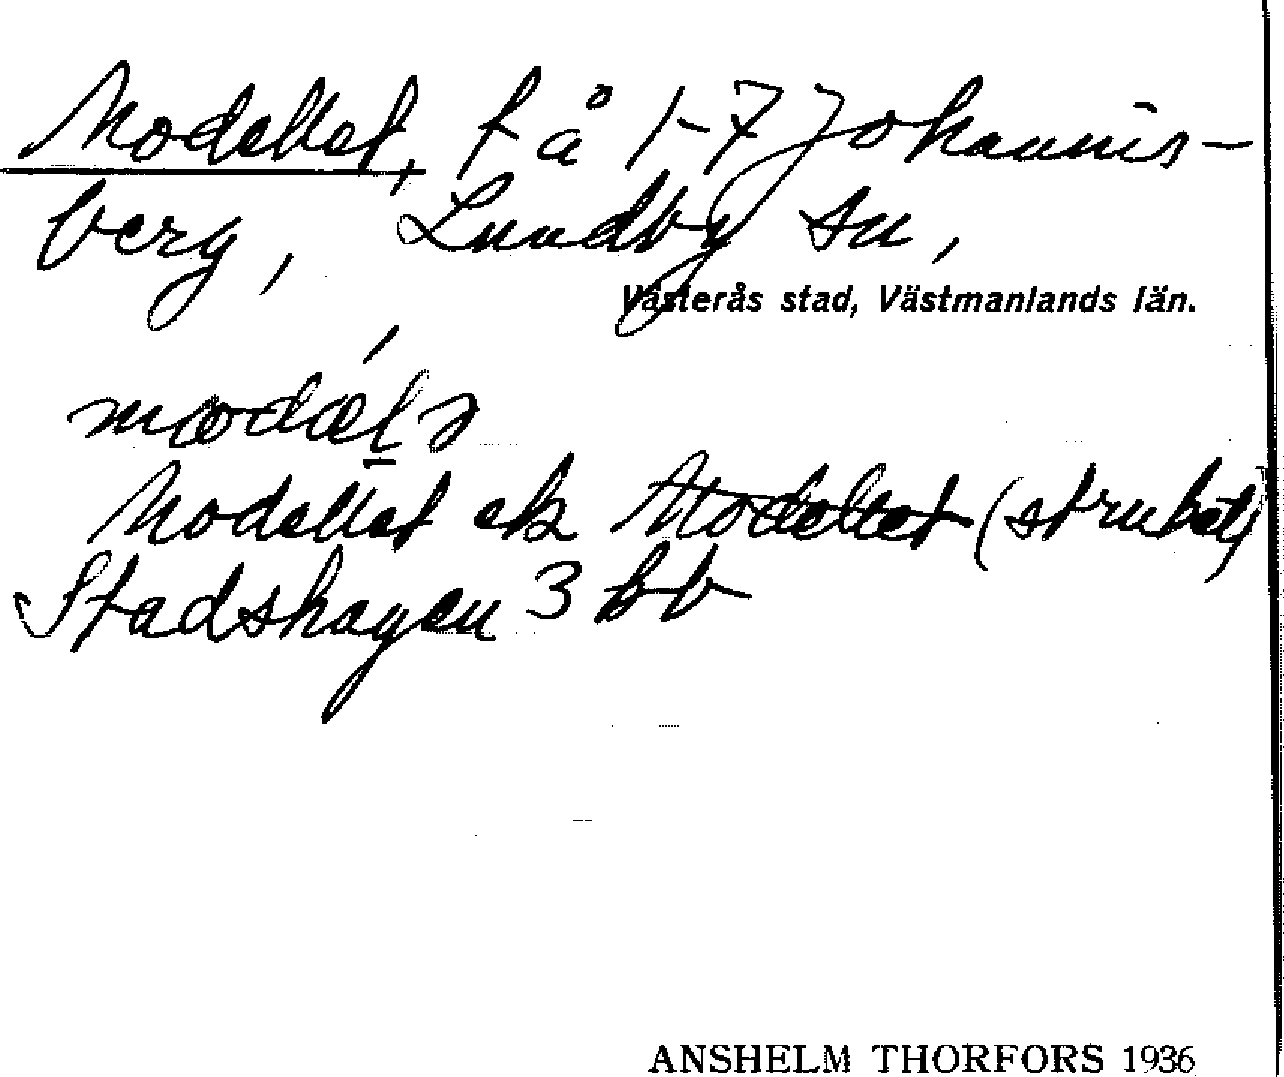 Modellet, t å 1-7 Johannis-
berg, Lundby sn,
Västerås stad, Västmanlands län.
modæl
Modellet ek Modellet (struket)
Stadshagen 3 bb
ANSHELM THORFORS 1936